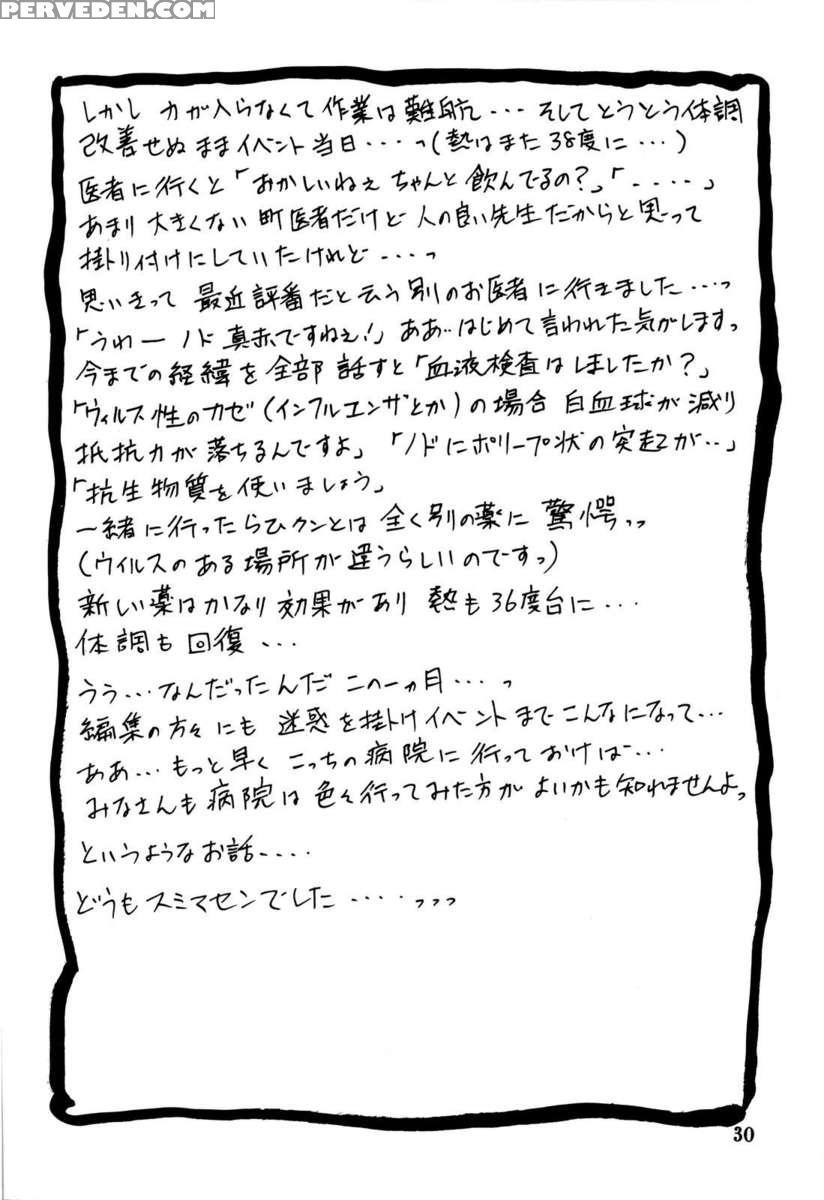 PERVEDEN.COM
しかし 力が入らなくて作業は難航・・・ そしてとうとう体調
改善せぬままイベント当日・・・・っ(熱はまた38度に・・・)
医者に行くと「おかしいねぇ ちゃんと飲んでるの?」「・・・・」
あまり大きくない町医者だけど 人の良い先生だからと思って
掛トリ付けにしていたけれど・・・・っ
思いきって 最近評番だと云う別のお医者に行きました・・・っ
「うわー ノド真赤ですねぇ!」ああ‥はじめて言われた気がします。
今までの経緯を全部話すと「血液検査はしましたか?」
「ウィルス性のカゼ(インフルエンザとか)の場合 白血球が減り
抵抗力が落ちるんですよ」「ノドにポリープ状の突起が‥」
「抗生物質を使いましょう」
一緒に行ったらひクンとは 全く別の薬に 驚愕っっ
(ウイルスのある場所が違うらしいのですっ)
新しい薬はかなり効果があり 熱も36度台に・・・
体調も回復・・・
うぅ・・・なんだったんだ この一ヵ月・・・・っ
編集の方々にも 迷惑を掛けイベントまでこんなになって・・・
ああ・・・もっと早く こっちの病院に行っておけば・・・
みなさんも病院は色々行ってみた方がよいかも知れませんよっ
というようなお話・・・・
どうもスミマセンでした・・・・っっっ
30